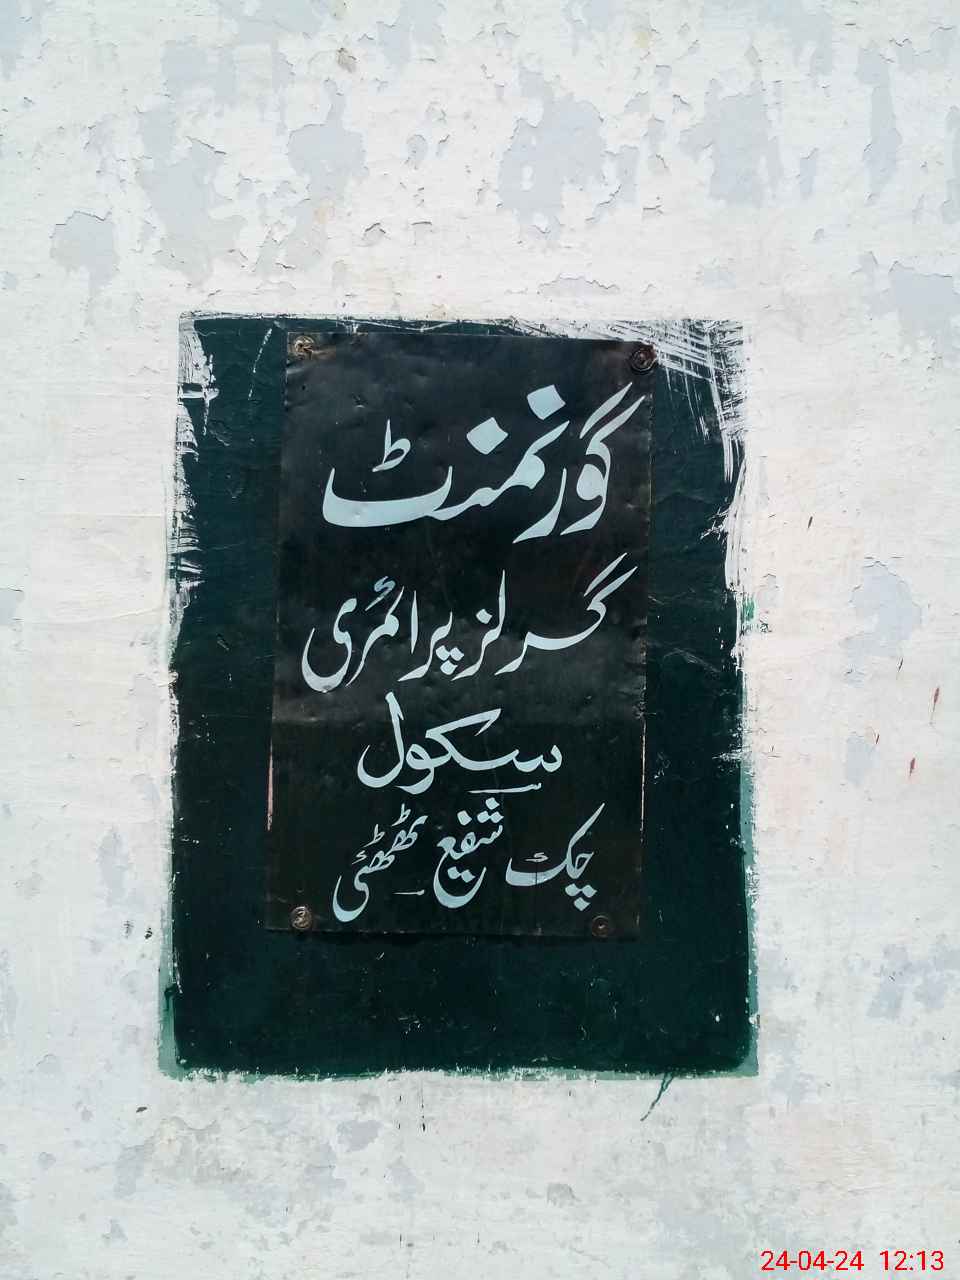 گورنمنٹ
گرلز پرائمری
سکول
چک شفیع ٹھٹھئی
24-04-24 12:13